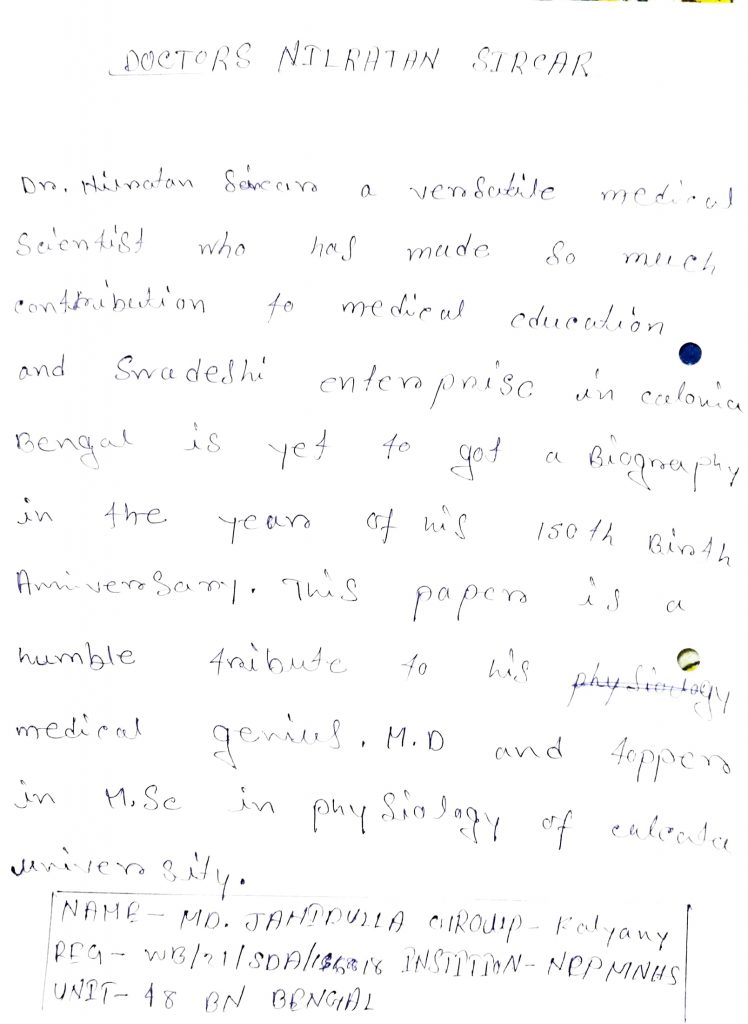 DOCTORS NILRATAN SIRCAR
Dr. Nilratan Sircar a versatile medical
Scientist who has made so much
contribution to medical education
and Swadeshi enterprise in colonia
Bengal is yet to got a Biography
in the year of his 150th Birth
Anniversary. This paper is a
humble tribute to his physiology
medical genius, M.D and topper
in M.Sc in physiology of calcata
university.
NAME - MD. JAHIDULLA GROUP - Kalyany
REG - WB/21/SDA/ INSTITION - NRPMNHS
UNIT - 48 BN BENGAL